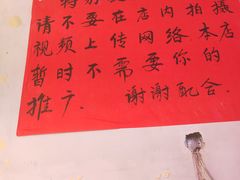 请不要在店内拍摄
视频上传网络.本店
暂时不需要你的
推广.谢谢配合.